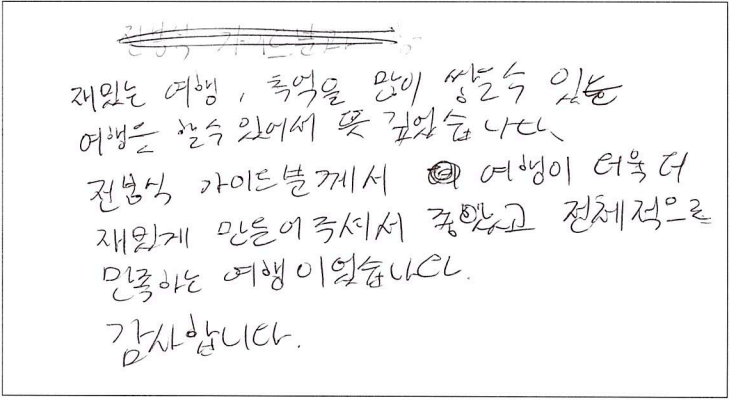 재밌는 여행, 추억을 많이 쌓을수 있는
여행을 할수 있어서 뜻 깊었습니다.
전봉식 가이드분께서 여행이 더욱더
재밌게 만들어주셔서 좋았고 전체적으로
만족하는 여행이었습니다.
감사합니다.